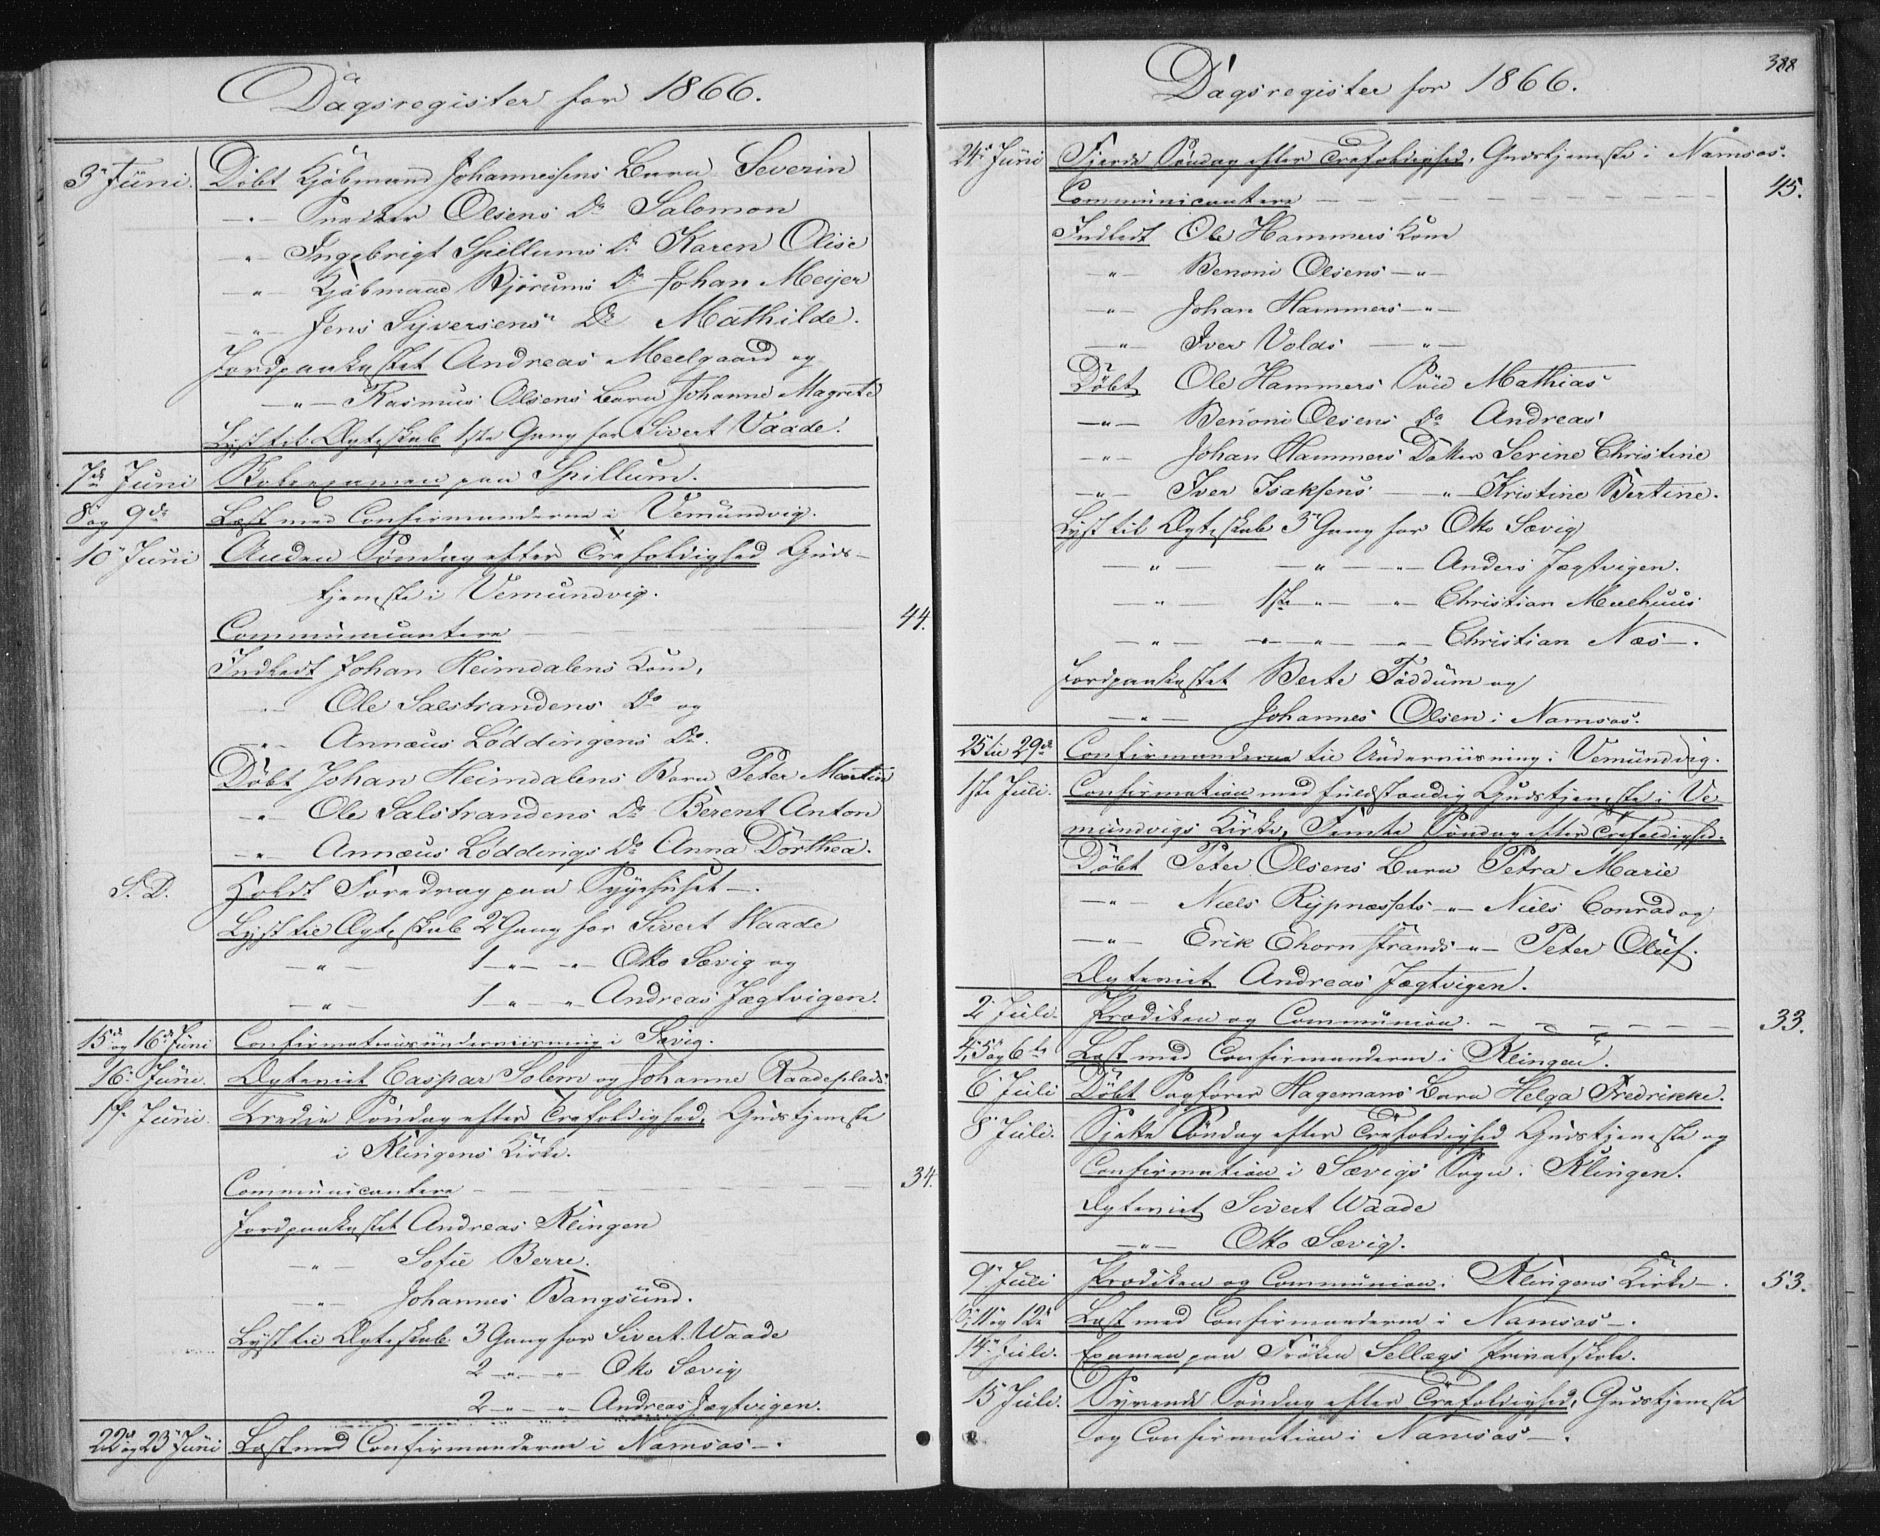 Dagsregister for 1866.
3' Juni. Döbt Kjöbmand Johannesens Barn Severin
-"- Snedker Olsens Do Salomon
" Ingebrigt Spillums Do Karen Olise
-"- Kjöbmand Bjørums Do Johan Meijer
-"- Jens Syversens Do Mathilde.
Jordpaakastet Andreas Meelgaard og
-"- Rasmus Olsens Barn Johanne Magrete
Lyst til Ægteskab 1ste Gang for Sivert Vaade.
7de Juni Skoleexamen paa Spillum.
8 og 9de Læst med Confirmanderne i Vemundvig.
10' Juni Anden Søndag efter Trefoldighed Guds-
tjeneste i Vemundvig.
Communicantere - - - 44.
Indledt Johan Heimdalens Kone,
-"- Ole Salstrandens Do og
-"- Annæus Løddingens Do.
Döbt Johan Heimdalens Barn Peter Martin
-"- Ole Salstrandens Do Berent Anton
-"- Annæus Løddings Do Anna Dorthea.
S. D. Holdt Foredrag paa Sygehuset -.
Lyst til Ægteskab 2 Gang for Sivert Waade
-"- 1 -"- -"- Otto Sævig og
-"- 1 " - " Andreas Jægtvigen.
15de og 16de Juni Confirmationsunderviisning i Sævig.
16' Juni. Ægteviet Caspar Solem og Johanne Raadeplads.
17de Juni. Tredie Søndag efter Trefoldighed, Gudstjeneste
i Klingens Kirke.
Communicantere - - - 34.
Jordpaakastet Andreas Klingen
-"- Sofie Berre.
-"- Johannes Bangsund.
Lyst til Ægteskab 3 Gang for Sivert Waade
2 -"- -"- Otto Sævig
2 -"- -"- Andreas Jægtvigen.
22de og 23' Juni Læst med Confirmanderne i Namsos -.
Dagsregister for 1866.
388
24' Juni Fjerde Søndag efter Trefoldighed, Gudstjeneste i Namsos.
Communicantere - - - 45.
Indledt Ole Hammers Kone
-"- Benoni Olsens -"-
-"- Johan Hammers -"-
-"- Iver Volds -"-
Döbt Ole Hammers Søn Mathias
-"- Benoni Olsens Do Andreas
-"- Johan Hammers Datter Serine Christine
-"- Iver Isaksens -"- Kristine Bertine.
Lyst til Ægteskab 3' Gang for Otto Sævig
-"- -"- -"- Anders Jægtvigen.
-"- 1ste -"- -"- Christian Meelhuus
-"- -"- -"- -"- Christian Næs -.
Jordpaakastet Berte Föddum og
-"- Johannes Olsen i Namsos.
25 til 29de Confirmanderne til Underviisning i Vemundvig.
1ste Juli. Confirmation med fuldstændig Gudstjeneste i Ve
mundvigs Kirke, Femte Søndag efter Trefoldighed.
Döbt Peter Olsens Barn Petra Marie
-"- Niels Rypnæssets -"- Niels Conrad og
-"- Erik Ehornstrands -"- Peter Oluf.
Ægteviet Andreas Jægtvigen.
2' Juli. Prædiken og Communion. - - - 33.
4, 5 og 6te Læst med Confirmanderne i Klingen.
6' Juli Döbt Sagfører Hagemans Barn Helga Fredrikke.
8' Juli. Sjette Søndag efter Trefoldighed Gudstjeneste og
Confirmation i Sævigs Sogn i Klingen.
Ægteviet Sivert Waade
-"- Otto Sævig.
9' Juli Prædiken og Communion i Klingens Kirke -. 53.
10, 11 og 12te Læst med Confirmanderne i Namsos -.
14' Juli. Examen paa Frøken Sellægs Privatskole.
15 Juli. Syvende Søndag efter Trefoldighed, Gudstjeneste
og Confirmation i Namsos -.